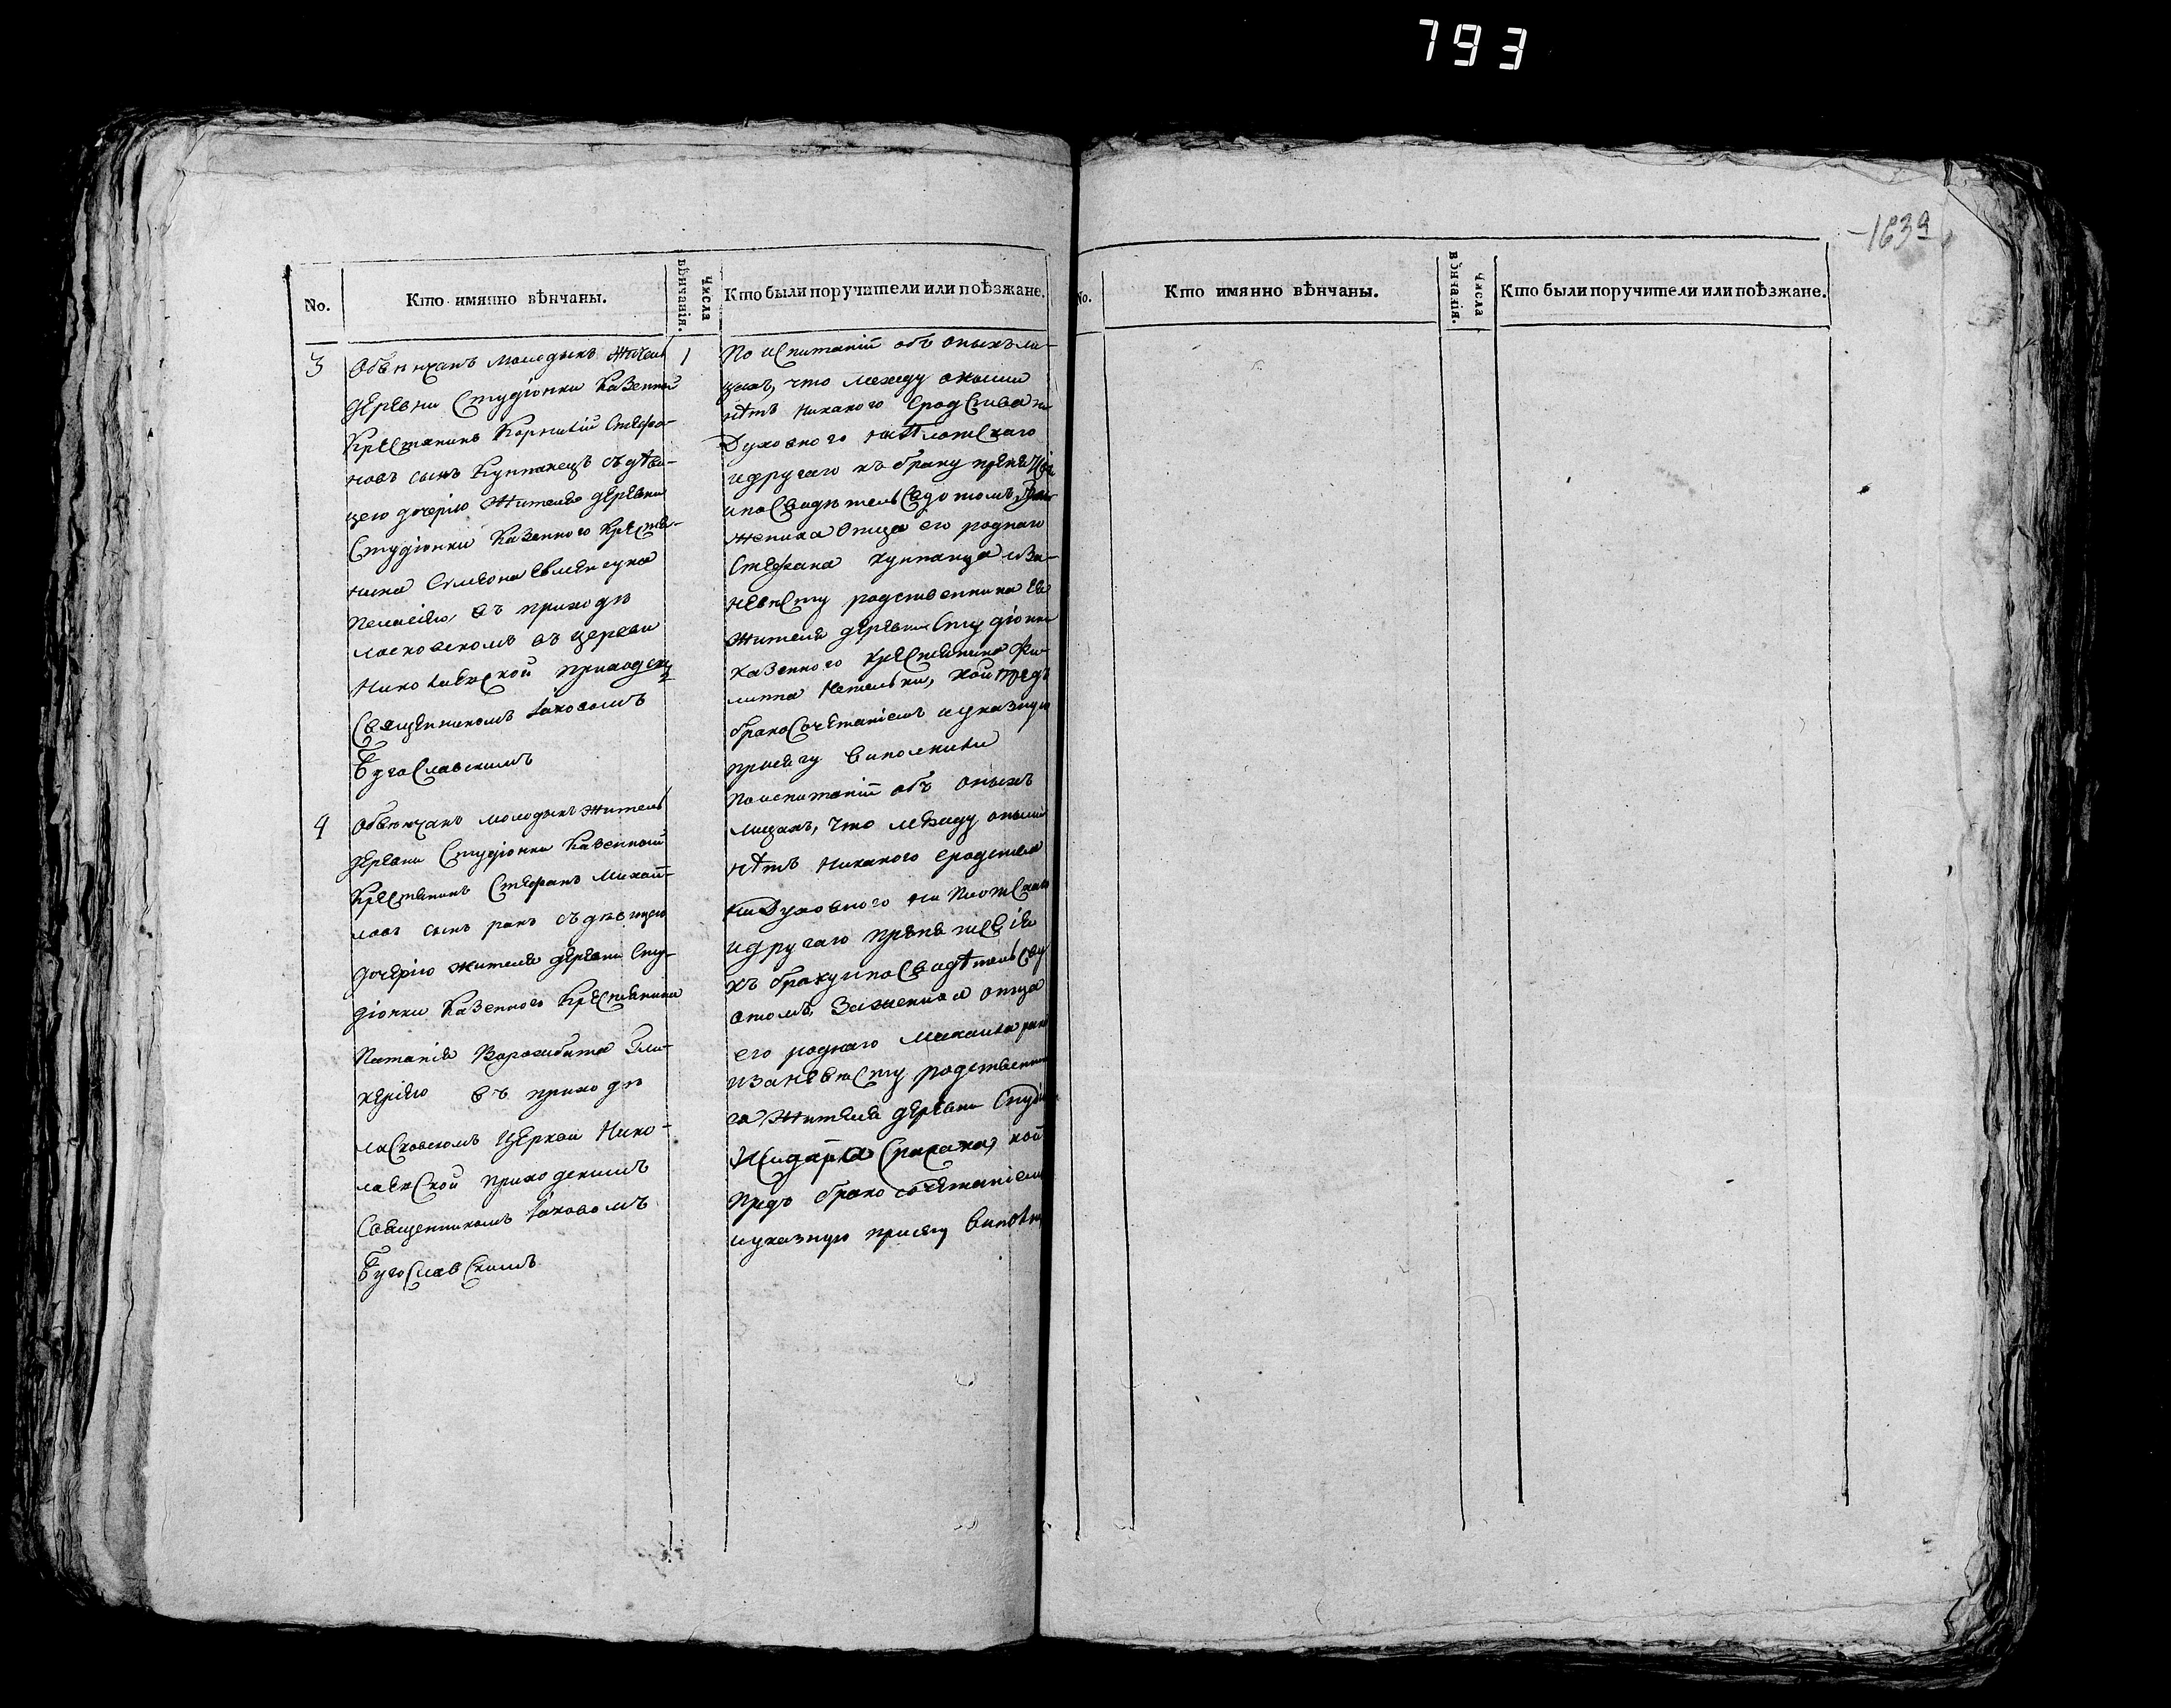 793
1639
No.
Кто имянно вѣнчаны.
Числа вѣнчанія.
Кто были поручители или поѣзжане.
3
Обвѣнчанъ молодыкъ житель
деревни Студіонки Казенной
Крестянинъ Корнилій Стефа-
новъ сынъ Кунтанецъ съ дѣви-
цею дочерію Жителя деревни
Студіонки Казенного Крестя-
нина Симеона
Пелагіею, въ приходѣ
ласковскомъ въ церкви
Николаевской приходски
Священникомъ Іаковомъ
Бугославскимъ
1
По испитаніи объ оныхъ ли-
цахъ, что между оными
нѣтъ никакого сродства ни
Духовного ни Плотскаго
и другаго къ браку препятсвія
и по свидѣтельсву о томъ,
жениха Отца его роднаго
Стефана Кунтанца и за
невѣсту родственника ея
Жителя деревни Студіонки
казенного крестянина Фи-
липпа кои предъ
бракосочетаніемъ и указную
присягу виполнили
4
Обвѣнчанъ молодыкъ житель
деревни Студіонки Казенной
Крестянинъ Стефанъ Михай-
ловъ сынъ ракъ съ дѣвицею
дочерію жителя деревни Сту-
діонки Казенного Крестянина
Потапія Ворожбита Гли-
керіею въ приходѣ
ласковскомъ Церкви Нико-
лаевской приходскимъ
Священникомъ Іаковомъ
Бугославскимъ
По испитаніи объ оныхъ
лицахъ, что между оными
нѣтъ никакого сродства
ни Духовного ни Плотскаго
и другаго препятсвія
къ браку и по свидѣтельсву
о томъ, За жениха отца
его роднаго Михаила рака
и за невѣсту родственни
ея жителя деревни
кои
Предъ бракосочетаніемъ
и указную присягу виполни
No.
Кто имянно вѣнчаны.
Числа вѣнчанія.
Кто были поручители или поѣзжане.